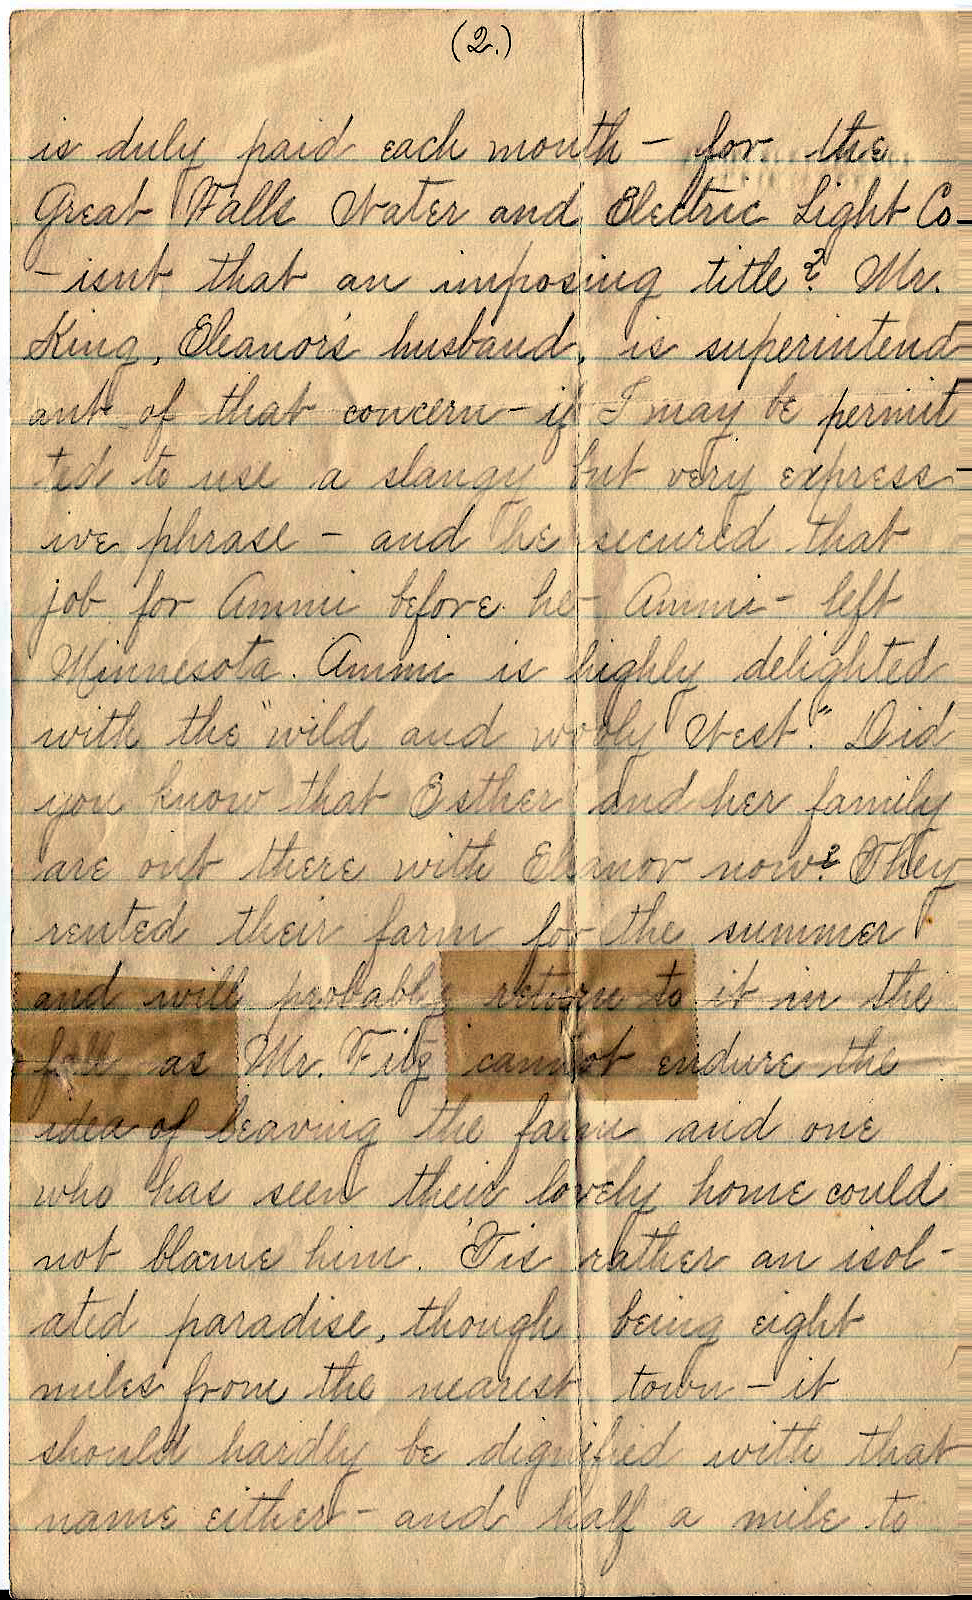 (2.)
is duly paid each month - for the
Great Falls Water and Electric Light Co-
- isnt that an imposing title? Mr.
King, Eleanor's husband, is superintend
ant of that concern - if I may be permit
ted to use a slangy but very express-
ive phrase - and he secured that
job for Ammi before he - Ammi - left
Minnesota. Ammi is highly delighted
with the "wild and wooly West." Did
you know that Esther and her family
are out there with Eleanor now? They
rented their farm for the summer
and will probably return to it in the
fall as Mr. Fitz cannot endure the
idea of leaving the farm and one
who has seen their lovely home could
not blame him. 'Tis rather an isol-
ated paradise, though being eight
miles from the nearest town - it
should hardly be dignified with that
name either - and half a mile to